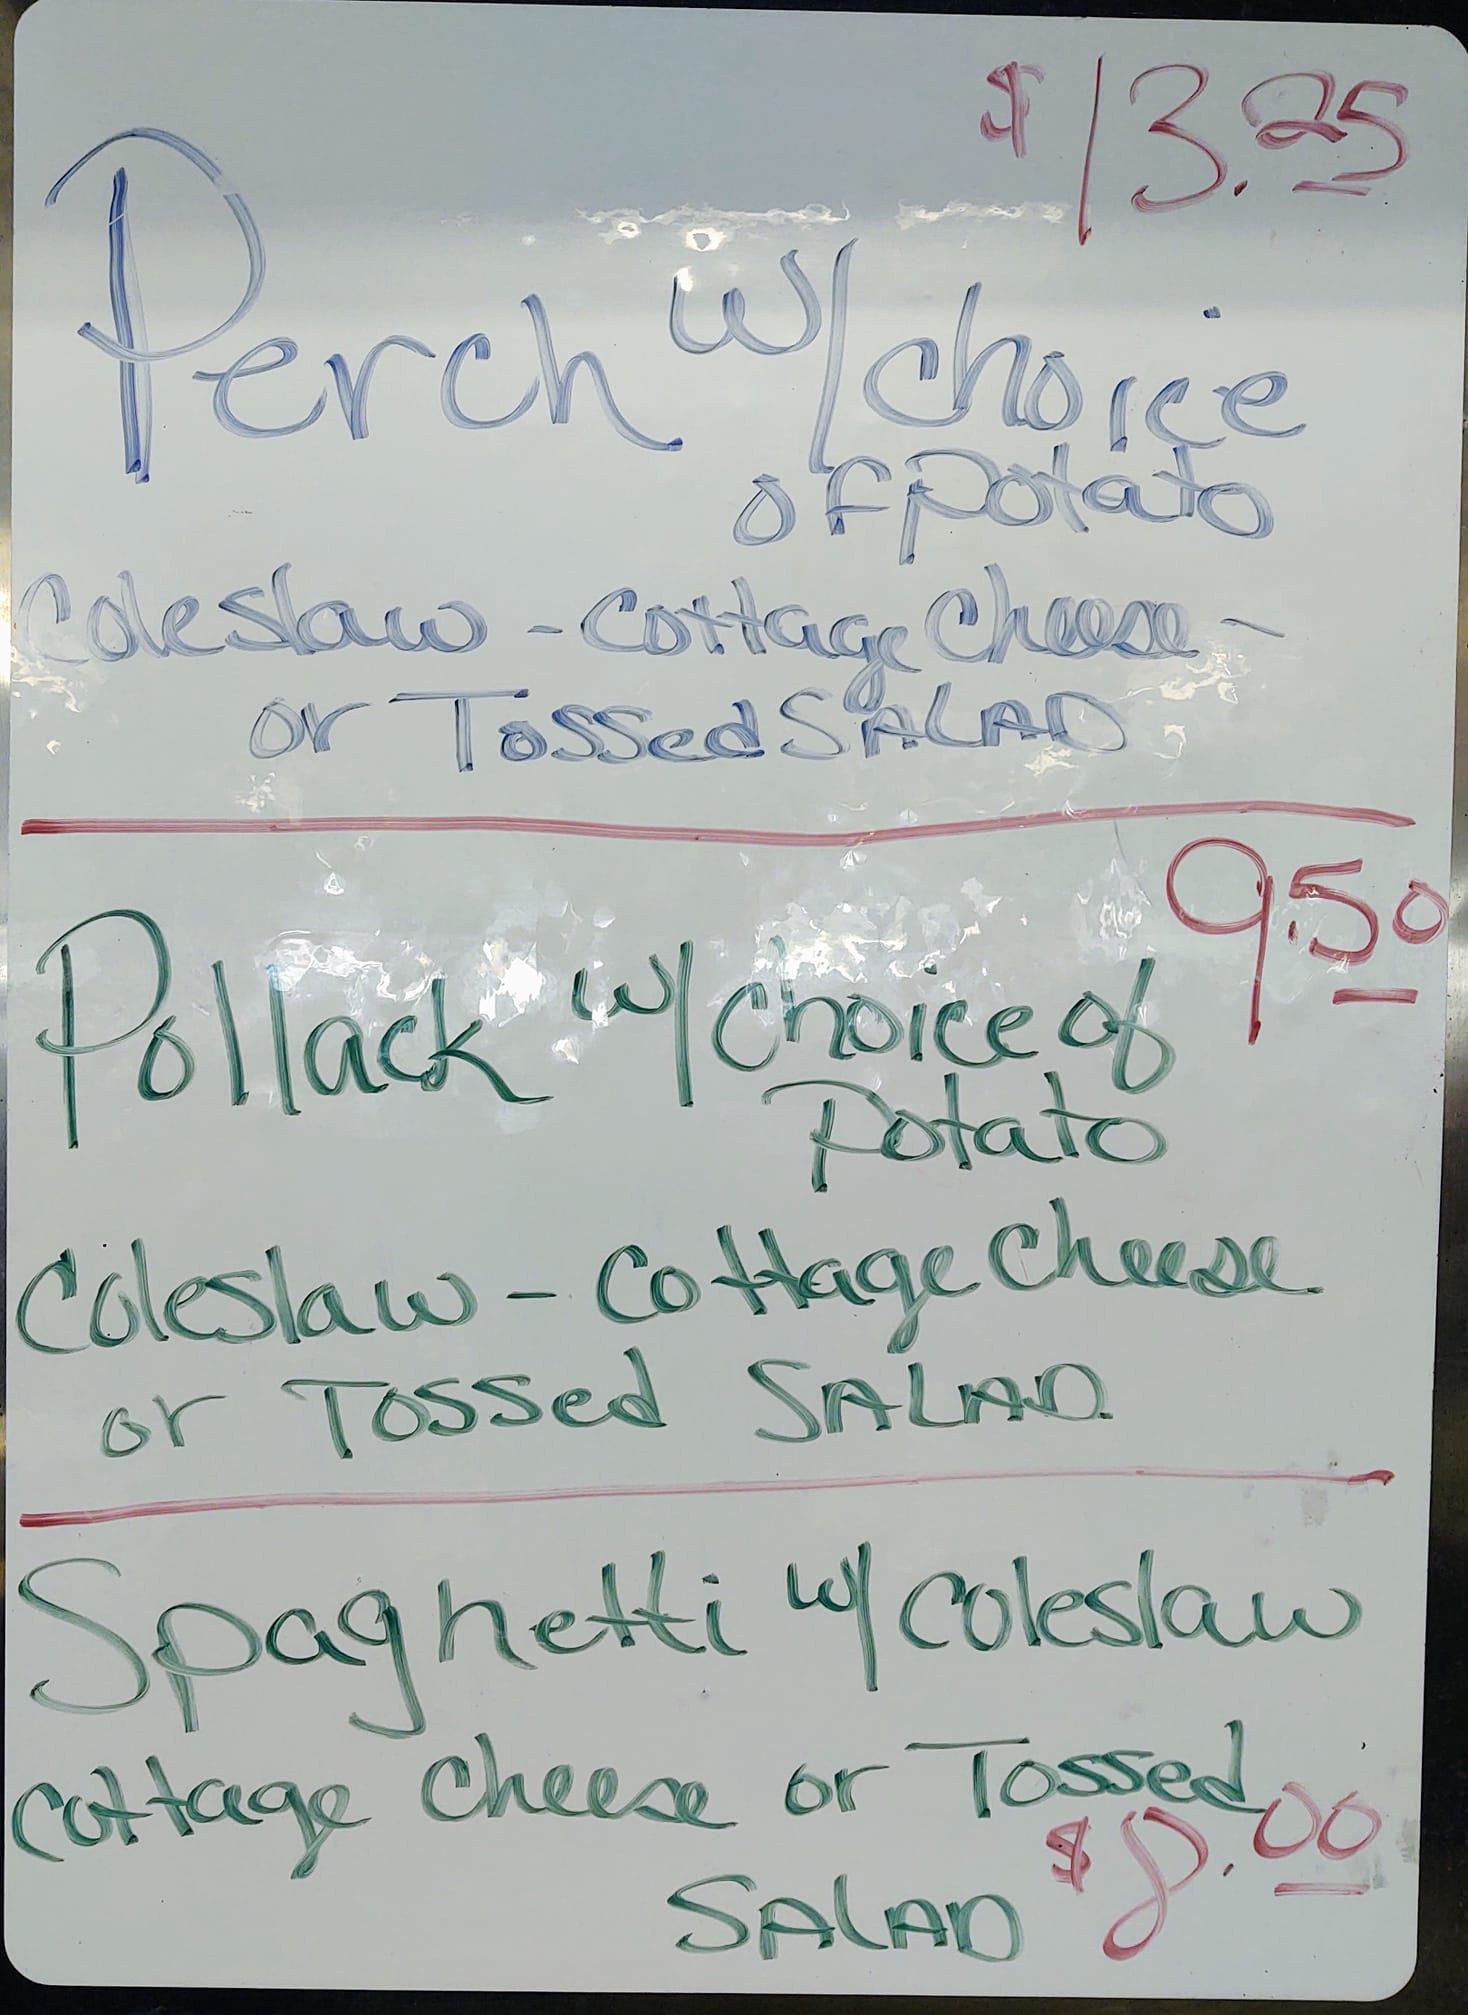 $13.25
Perch w/choice
of potato
Coleslaw - Cottage Cheese -
or Tossed SALAD
9.50
Pollack w/choice of
Potato
Coleslaw - Cottage Cheese
or Tossed SALAD
Spaghetti w/ coleslaw
cottage cheese or Tossed
SALAD $8.00